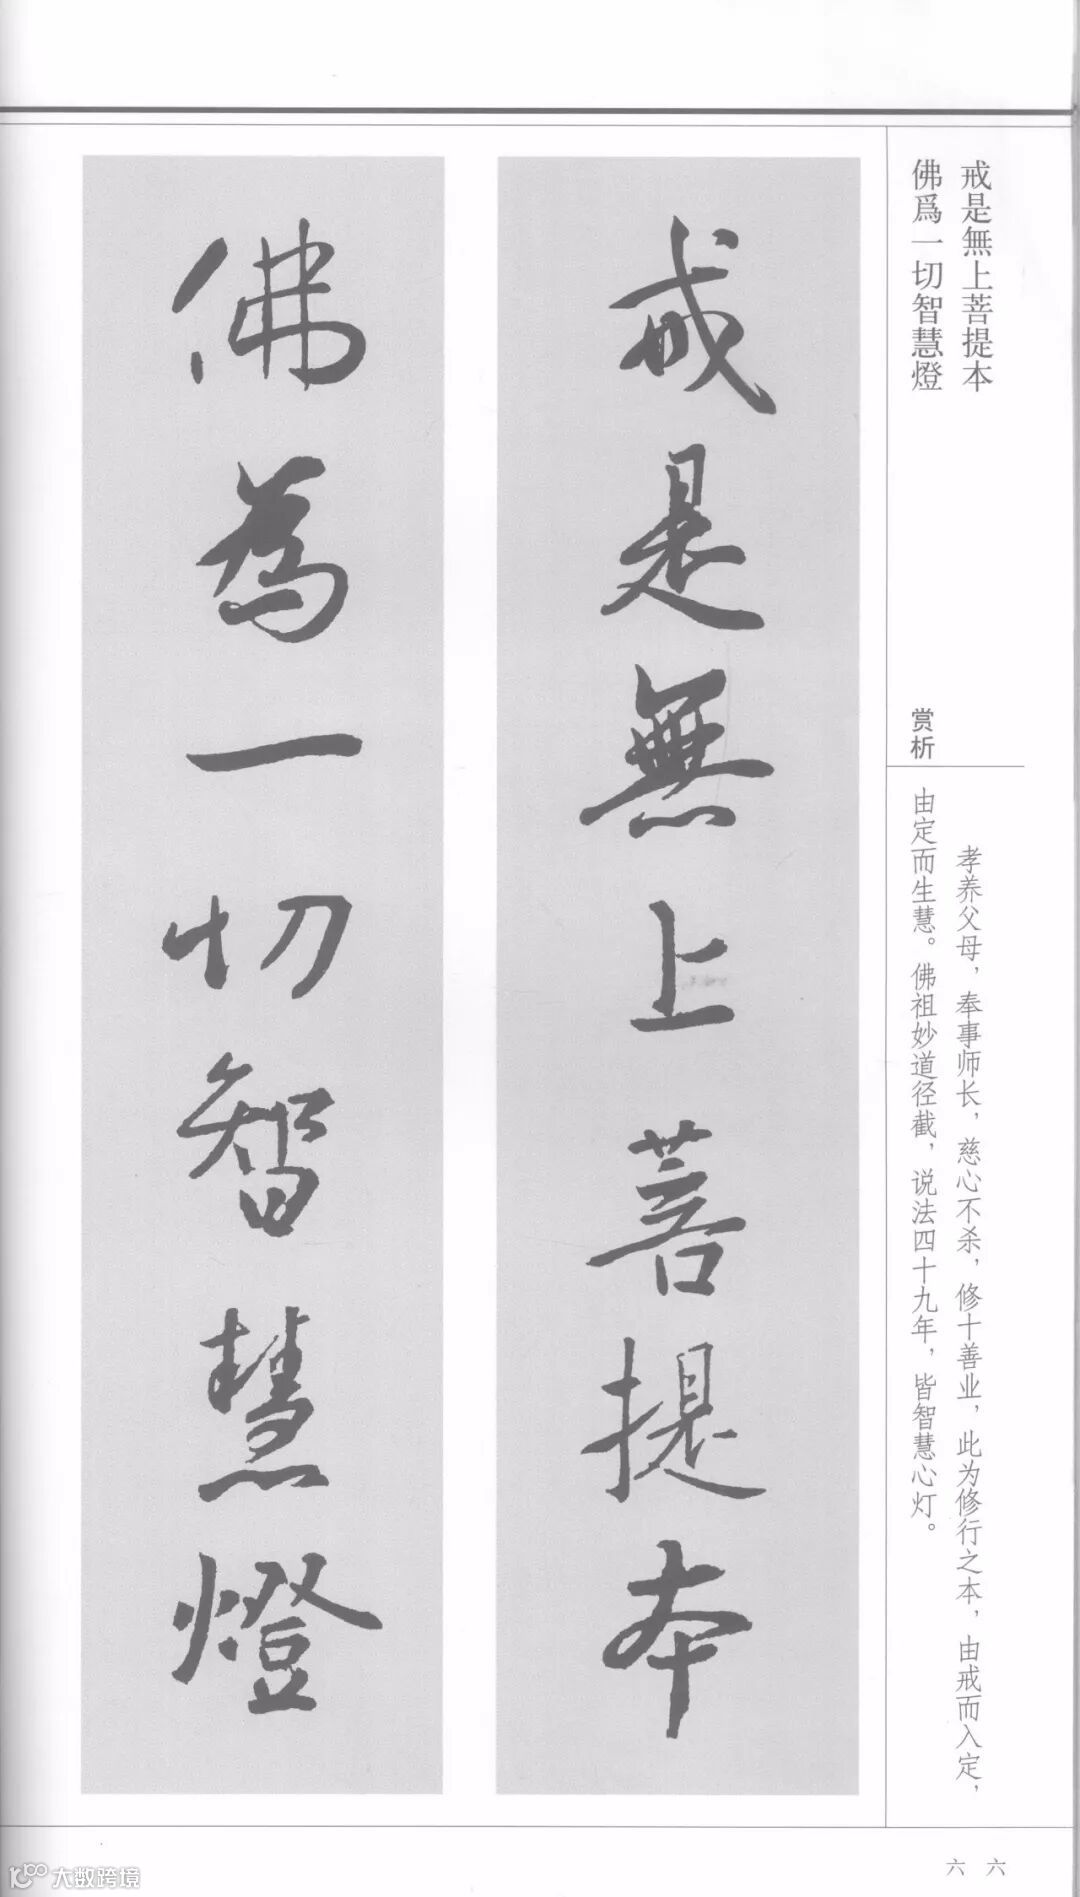 戒是無上菩提本
佛爲一切智慧燈
赏析
孝养父母，奉事师长，慈心不杀，修十善业，此为修行之本，由戒而入定，
由定而生慧。佛祖妙道径截，说法四十九年，皆智慧心灯。
戒是無上菩提本
佛為一切智慧燈
六六
大数跨境